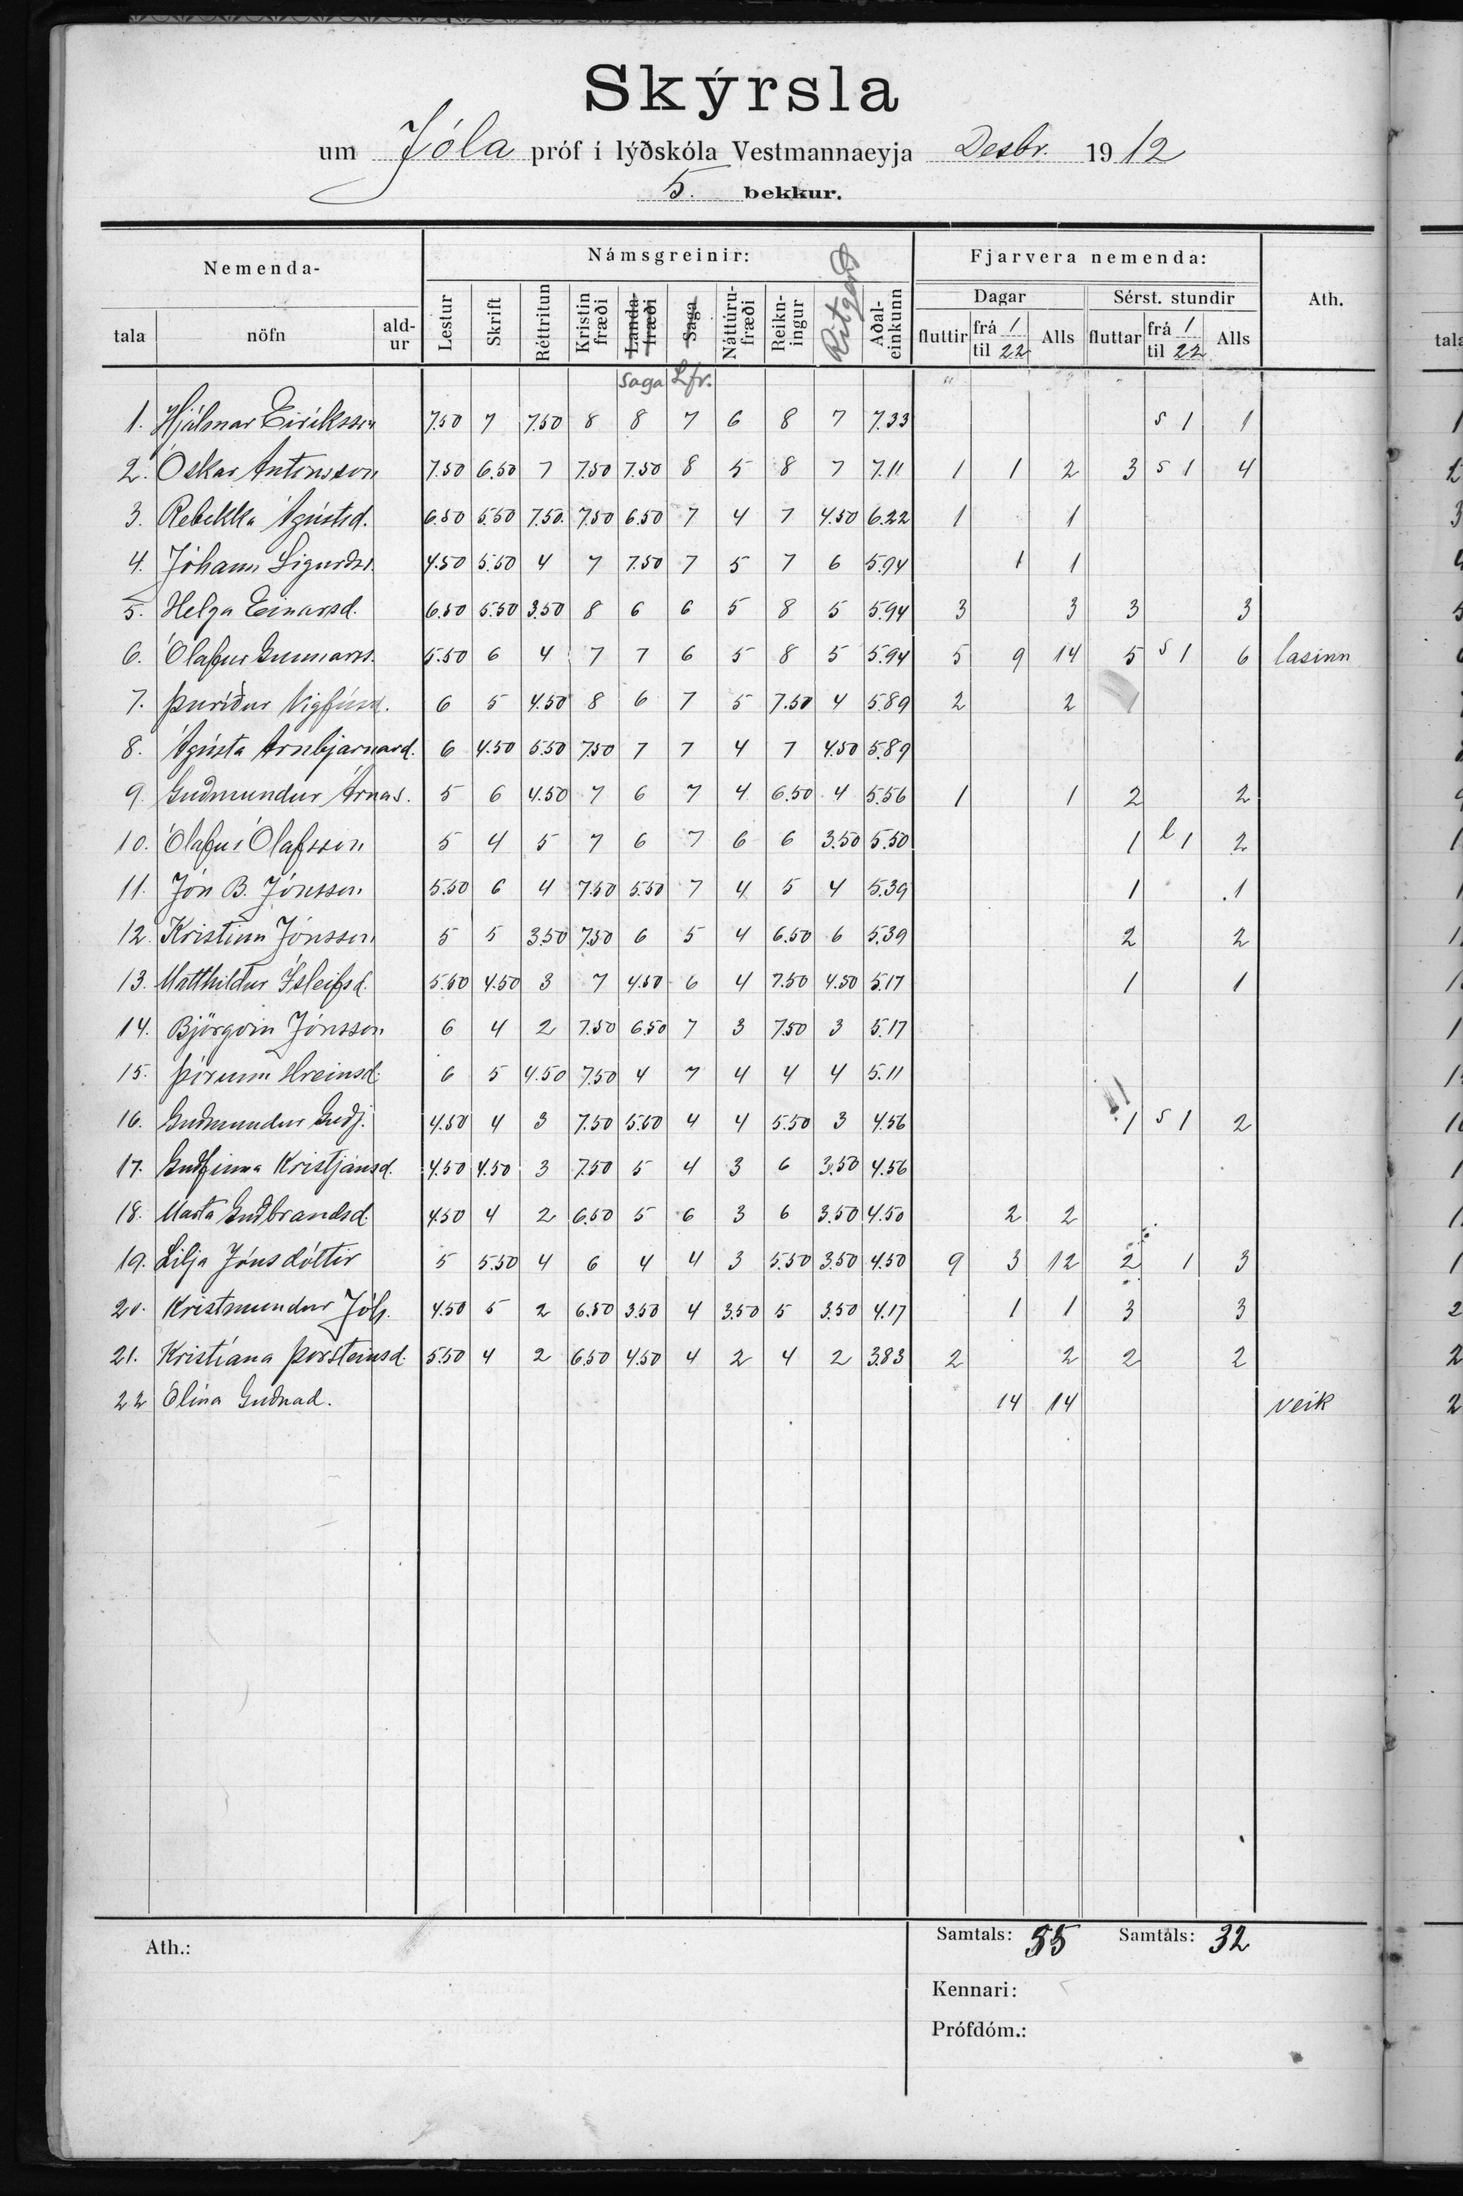 Skýrsla
um Jóla próf í lýðskóla Vestmannaeyja Desbr. 1912
5. bekkur.
Nemenda- Námsgreinir: Fjarvera nemenda: Ath.
Dagar Sérst. stundir
tala nöfn aldur Lestur Skrift Réttritun Kristinfræði Landafræði Saga Náttúrufræði Reikningur Ritgerð Aðaleinkunn fluttir frá 1 til 22 Alls fluttar frá 1 til 22 Alls
saga Lfr.
1. Hjálmar Eiríksson 7.50 7 7.50 8 8 7 6 8 7 7.33 s 1 1
2. Óskar Antonsson 7.50 6.50 7 7.50 7.50 8 5 8 7 7.11 1 1 2 3 s 1 4
3. Rebekka Ágústsd. 6.50 5.50 7.50. 7.50 6.50 7 4 7 4.50 6.22 1 1
4. Jóhann Sigurðss. 4.50 5.50 4 7 7.50 7 5 7 6 5.94 1 1
5. Helga Einarsd. 6.50 5.50 3.50 8 6 6 5 8 5 5.94 3 3 3 3
6. Ólafur Gunnarss. 5.50 6 4 7 7 6 5 8 5 5.94 5 9 14 5 s 1 6 lasinn
7. Þuríður Vigfúsd. 6 5 4.50 8 6 7 5 7.50 4 5.89 2 2
8. Ágústa Arnbjarnard. 6 4.50 5.50 7.50 7 7 4 7 4.50 5.89
9. Guðmundur Árnas. 5 6 4.50 7 6 7 4 6.50 4 5.56 1 1 2 2
10. Ólafur Ólafsson 5 4 5 7 6 7 6 6 3.50 5.50 1 l 1 2
11. Jón B. Jónsson 5.50 6 4 7.50 5.50 7 4 5 4 5.39 1 1
12. Kristinn Jónsson 5 5 3.50 7.50 6 5 4 6.50 6 5.39 2 2
13. Matthildur Ísleifsd. 5.50 4.50 3 7 4.50 6 4 7.50 4.50 5.17 1 1
14. Björgvin Jónsson 6 4 2 7.50 6.50 7 3 7.50 3 5.17
15. Þórunn Hreinsd. 6 5 4.50 7.50 4 7 4 4 4 5.11
16. Guðmundur Guðj. 4.50 4 3 7.50 5.50 4 4 5.50 3 4.56 1 s 1 2
17. Guðfinna Kristjánsd. 4.50 4.50 3 7.50 5 4 3 6 3.50 4.56
18. Marta Guðbrandsd. 4.50 4 2 6.50 5 6 3 6 3.50 4.50 2 2
19. Lilja Jónsdóttir 5 5.50 4 6 4 4 3 5.50 3.50 4.50 9 3 12 2 1 3
20. Kristmundur Jóh. 4.50 5 2 6.50 3.50 4 3.50 5 3.50 4.17 1 1 3 3
21. Kristíana Þorsteinsd. 5.50 4 2 6.50 4.50 4 2 4 2 3.83 2 2 2 2
22 Ólína Guðnad. 14 14 veik
Ath.: Samtals: 55 Samtals: 32
Kennari:
Prófdóm.: